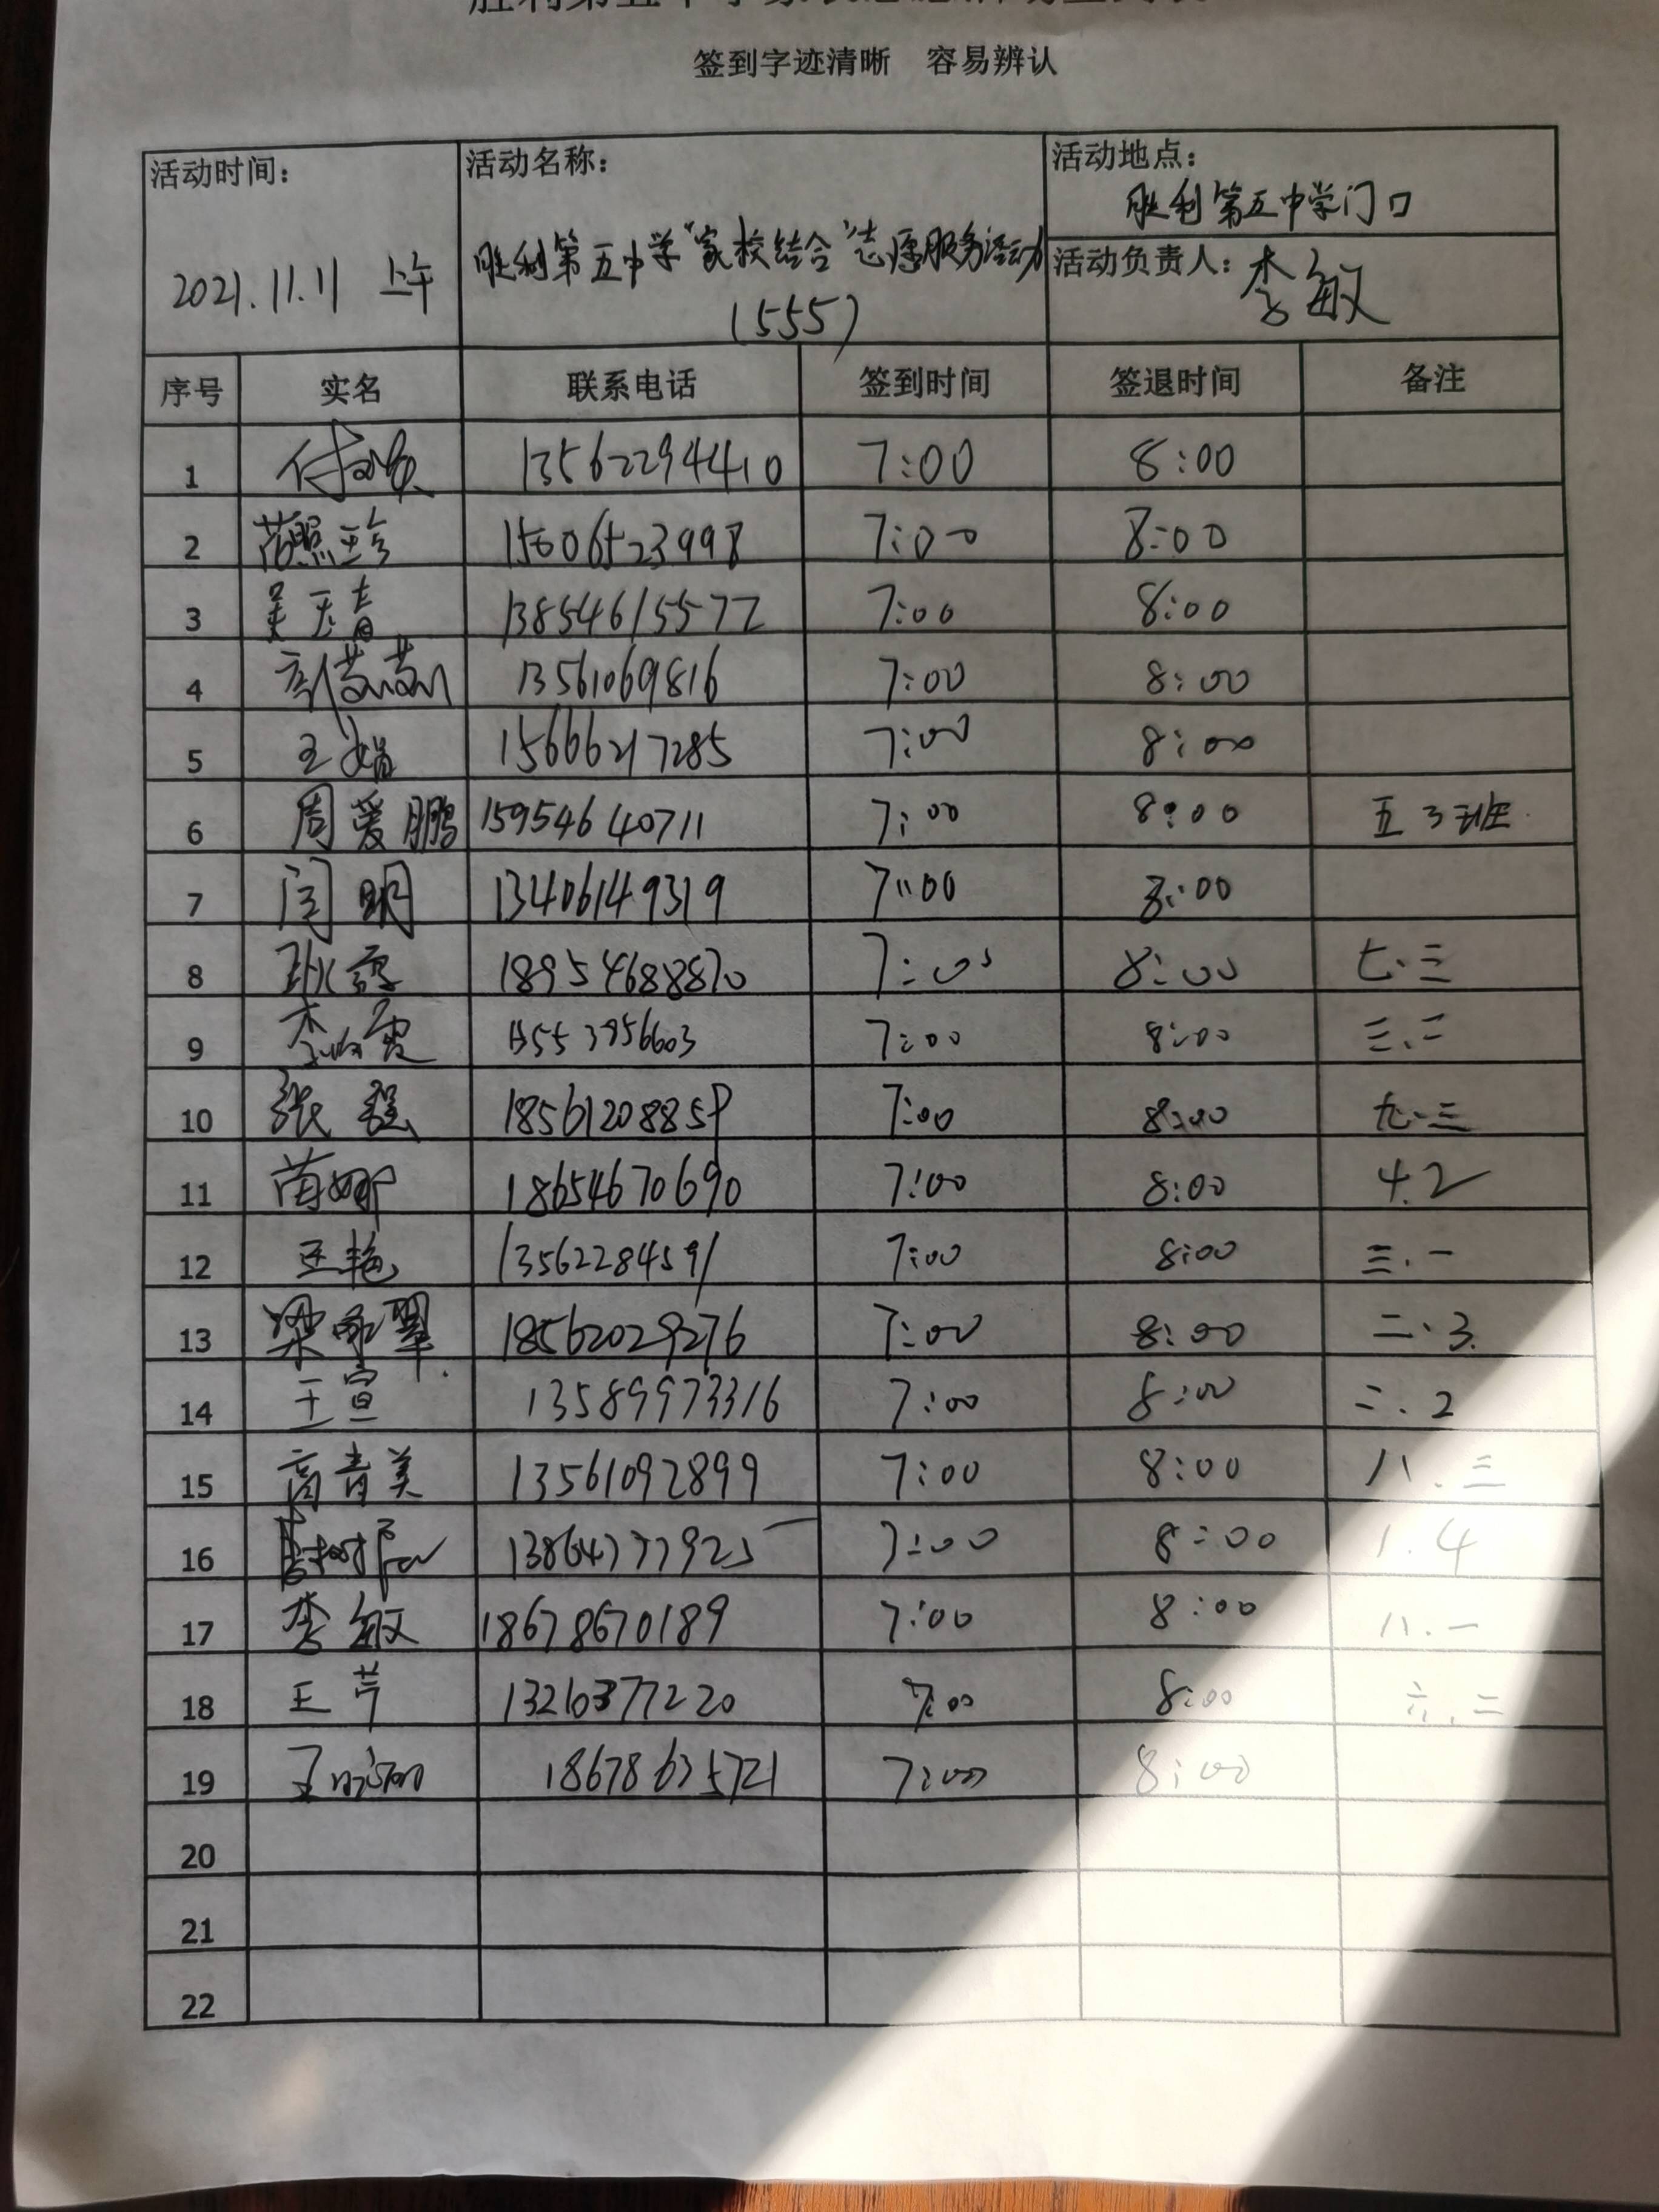 签到字迹清晰 容易辨认
活动时间: 活动名称: 活动地点:
胜利第五中学门口
2021.11.11 上午 胜利第五中学"家校结合"志愿服务活动 活动负责人: 李敏
(555)
序号 实名 联系电话 签到时间 签退时间 备注
1 13562294410 7:00 8:00
2 范照珍 15006523998 7:00 8:00
3 吴玉春 13854615572 7:00 8:00
4 13561069816 7:00 8:00
5 王娟 15666217285 7:00 8:00
6 周爱鹏 15954640711 7:00 8:00 五3班
7 闫明 13406149319 7:00 8:00
8 18954688870 7:00 8:00 七.三
9 李 霞 15553956603 7:00 8:00 三.二
10 张磊 18561208859 7:00 8:00 九.三
11 苗娜 18654670690 7:00 8:00 4.2
12 王艳 13562284591 7:00 8:00 三.一
13 梁 翠 18562029276 7:00 8:00 二.3.
14 王宣 13589973316 7:00 8:00 二.2
15 高青美 13561092899 7:00 8:00 八.三
16 13864777925 7:00 8:00 1.4
17 李敏 18678670189 7:00 8:00 八.一
18 王芹 1326377220 7:00 8:00 六.二
19 王 18678635721 7:00 8:00
20
21
22